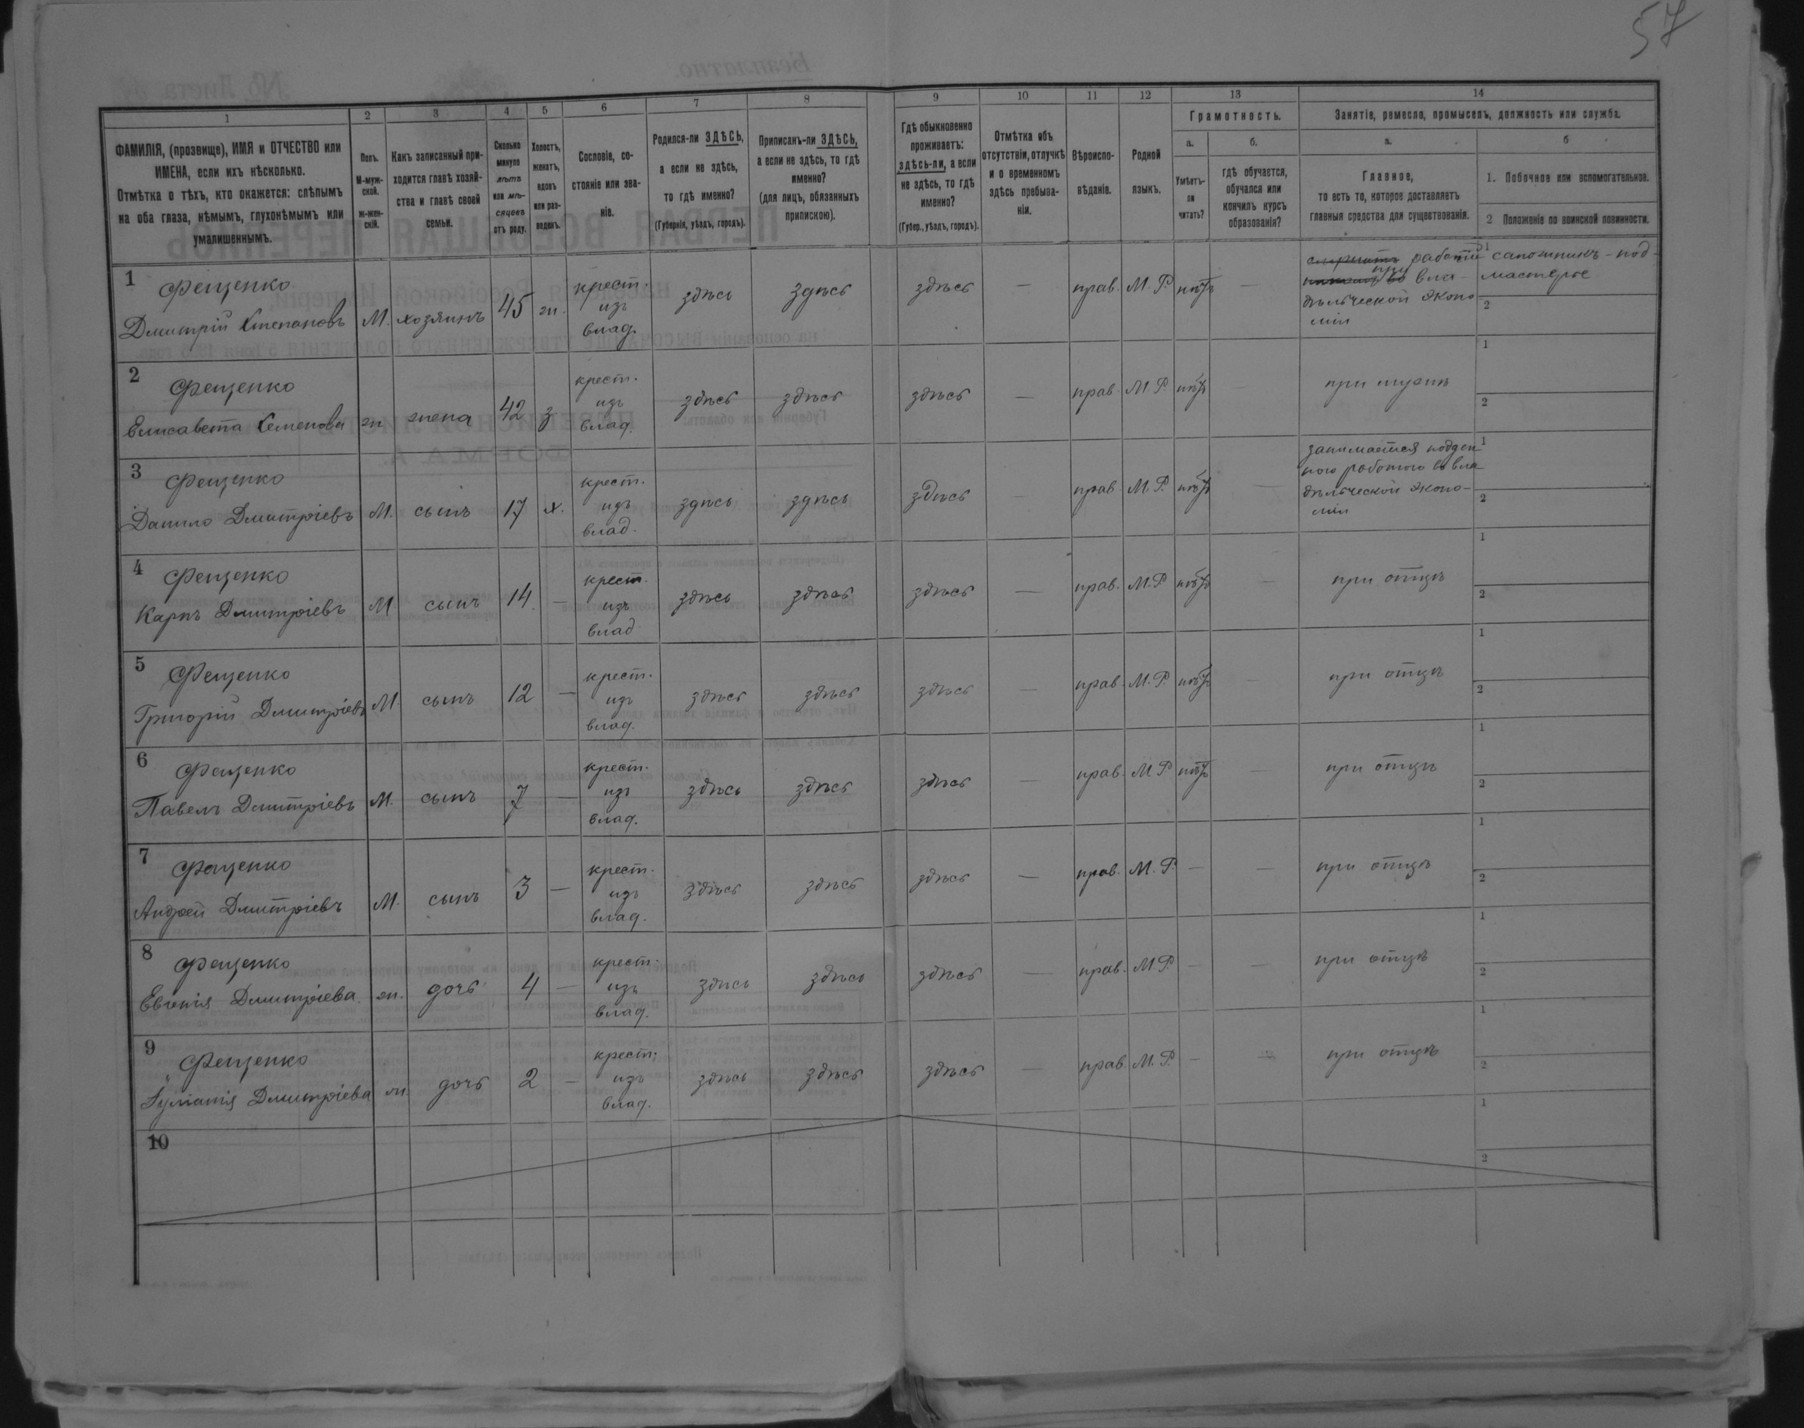 57
1 2 3 4 5 6 7 8 9 10 11 12 13 14
ФАМИЛІЯ, (прозвище), ИМЯ и ОТЧЕСТВО или
ИМЕНА, если ихъ нѣсколько.
Отмѣтка о тѣхъ, кто окажется: слѣпымъ
на оба глаза, нѣмымъ, глухонѣмымъ или
умалишеннымъ.
Полъ.
М-муж-
ской.
Ж-жен-
скій.
Какъ записанный при-
ходится главѣ хозяй-
ства и главѣ своей
семьи.
Сколько
минуло
лѣтъ
или мѣ-
сяцевъ
отъ роду.
Холостъ,
женатъ,
вдовъ
или раз-
веденъ.
Сословіе, со-
стояніе или зва-
ніе.
Родился-ли ЗДѢСЬ,
а если не здѣсь,
то гдѣ именно?
(Губернія, уѣздъ, городъ).
Приписанъ-ли ЗДѢСЬ,
а если не здѣсь, то гдѣ
именно?
(для лицъ, обязанныхъ
припискою).
Гдѣ обыкновенно
проживаетъ:
здѣсь-ли, а если
не здѣсь, то гдѣ
именно?
(Губер., уѣздъ, городъ).
Отмѣтка объ
отсутствіи, отлучкѣ
и о временномъ
здѣсь пребыва-
ніи.
Вѣроиспо-
вѣданіе.
Родной
языкъ.
Грамотность.
а.
Умѣетъ-
ли
читать?
б.
гдѣ обучается,
обучался или
кончилъ курсъ
образованія?
Занятіе, ремесло, промыселъ, должность или служба.
а.
Главное,
то есть то, которое доставляетъ
главныя средства для существованія.
б
1. Побочное или вспомогательное.
2 Положеніе по воинской повинности.
1 Фещенко
Дмитрій Степановъ М. хозяинъ 45 ж. крест. изъ влад. здѣсь здѣсь здѣсь — прав. М.Р. нѣтъ —
работ
при вла-
дѣльческой эконо
міи
1 сапожникъ - под-
мастерье
2
2 Фещенко
Елисавета Семенова ж жена 42 з крест. изъ влад. здѣсь здѣсь здѣсь — прав М.Р. нѣтъ — при мужѣ
1
2
3 Фещенко
Данило Дмитріевъ М. сынъ 17 х. крест. изъ влад. здѣсь здѣсь здѣсь — прав М.Р. нѣтъ —
занимается поден
ною работою во вла
дѣльческой эконо-
міи
1
2
4 Фещенко
Карпъ Дмитріевъ М сынъ 14 — крест. изъ влад здѣсь здѣсь здѣсь — прав. М.Р. нѣтъ — при отцѣ
1
2
5 Фещенко
Григорій Дмитріевъ М сынъ 12 — крест. изъ влад. здѣсь здѣсь здѣсь — прав. М.Р. нѣтъ — при отцѣ
1
2
6 Фещенко
Павелъ Дмитріевъ М. сынъ 7 — крест. изъ влад. здѣсь здѣсь здѣсь — прав. М Р. нѣтъ — при отцѣ
1
2
7 Фещенко
Андрей Дмитріевъ М. сынъ 3 — крест. изъ влад. здѣсь здѣсь здѣсь — прав. М.Р. — — при отцѣ
1
2
8 Фещенко
Евгенія Дмитріева. ж. дочь 4 — крест. изъ влад. здѣсь здѣсь здѣсь — прав. М.Р. — — при отцѣ
1
2
9 Фещенко
Дмитріева ж. дочь 2 — крест. изъ влад. здѣсь здѣсь здѣсь — прав. М.Р. — — при отцѣ
1
2
10
1
2